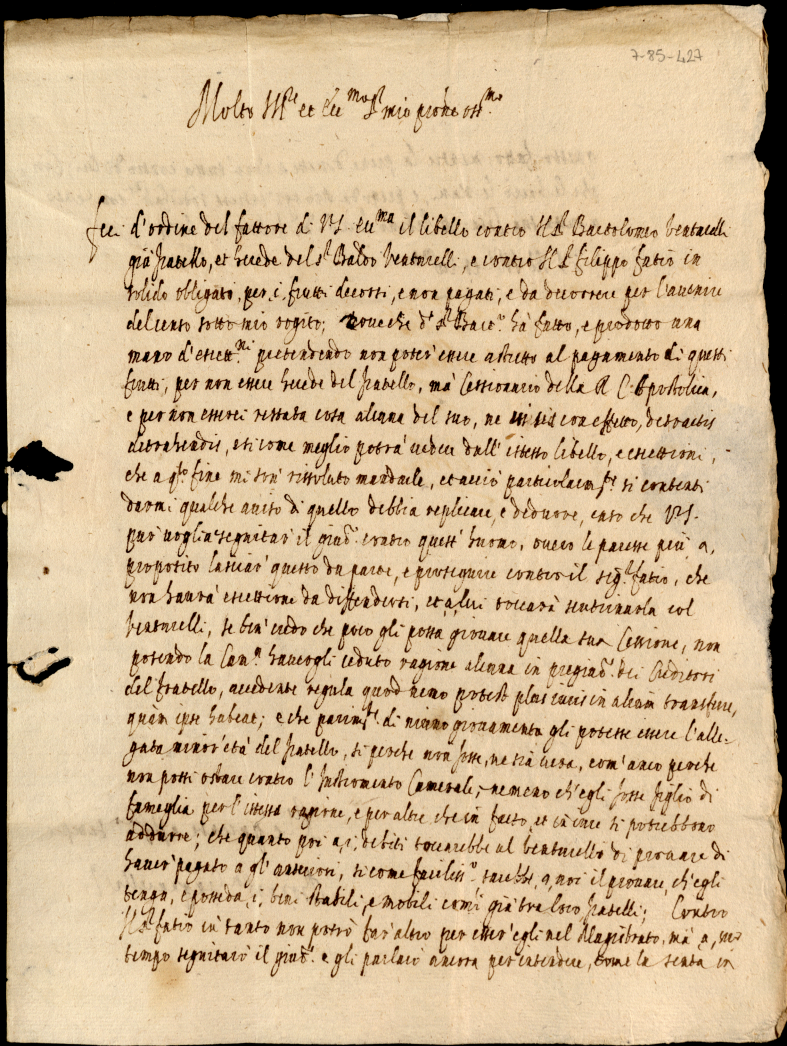 7-85-427
Molto Ill.re et Ecc.mo S.r mio prone oss.mo
Feci d'ordine del fattore di V.S. Ecc.ma il libello contro il S.r Bartolomeo Venturelli
già fratello, et herede del S.r Baldo Venturelli, e contro il S.r Filippo Fatio in
solido obligato, per i frutti decorsi, e non pagati, e da decorrere per l'avenire
del censo sotto mio rogito; dove che d.o S.r Bart.o hà fatto, e prodotto una
mano d'eccett.ni pretendendo non poter' essere astretto al pagamento di questi
frutti, per non essere herede del fratello, mà Cessionario della R. C. Apostolica,
e per non esserci restata cosa alcuna del suo, ne con effetto, detractis
detrahendis, e sicome meglio potrà vedere dall'istesso libello, e eccettioni,
che a q.to fine mi son' rissoluto mandarle, et acciò particolarm.te si contenti
darmi qualche aviso di quello debbia replicare, e dedurre, caso che V.S.
pur' voglia seguitar' il giud.o contro quest' huomo, overo le paresse più a,
proposito lasciar' questo da parte, e proseguire contro il sig.r Fatio, che
non haurà eccettione da diffendersi, et a lui toccarà sentirsela col
Venturelli, se ben' credo che poco gli possa giovare quella sua Cessione, non
potendo la Cam.a havergli ceduto ragione alcuna in pregiud.o dei Creditori
del fratello, accedente regula quod nemo potest plus iuris in alium transferre,
quam ipse habeat; e che parim.te di niuno giovamento gli potesse essere l'alle-
gata minor'età del fratello, si perche non fosse, ne sia vera, com'anco perche
non possi ostare contro l'Instromento Camerale, nemeno ch'egli fosse figlio di
fameglia per l'istessa ragione, e per altre che in fatto, et in iure si potrebbono
addurre; che quanto poi a, i, debiti toccarebbe al Venturelli di provare di
haver' pagato a gl'anteriori, si come faciliss.o sarebbe, a, noi il provare, ch'egli
tenga, e posseda, i, beni stabili, e mobili com'i già tra loro fratelli; Contro
il S.r Fatio in tanto non potrò far' altro per esser' egli nel Magistrato, mà a, suo
tempo seguitarò il giud.o e gli parlarò ancora per intendere, come la senta in